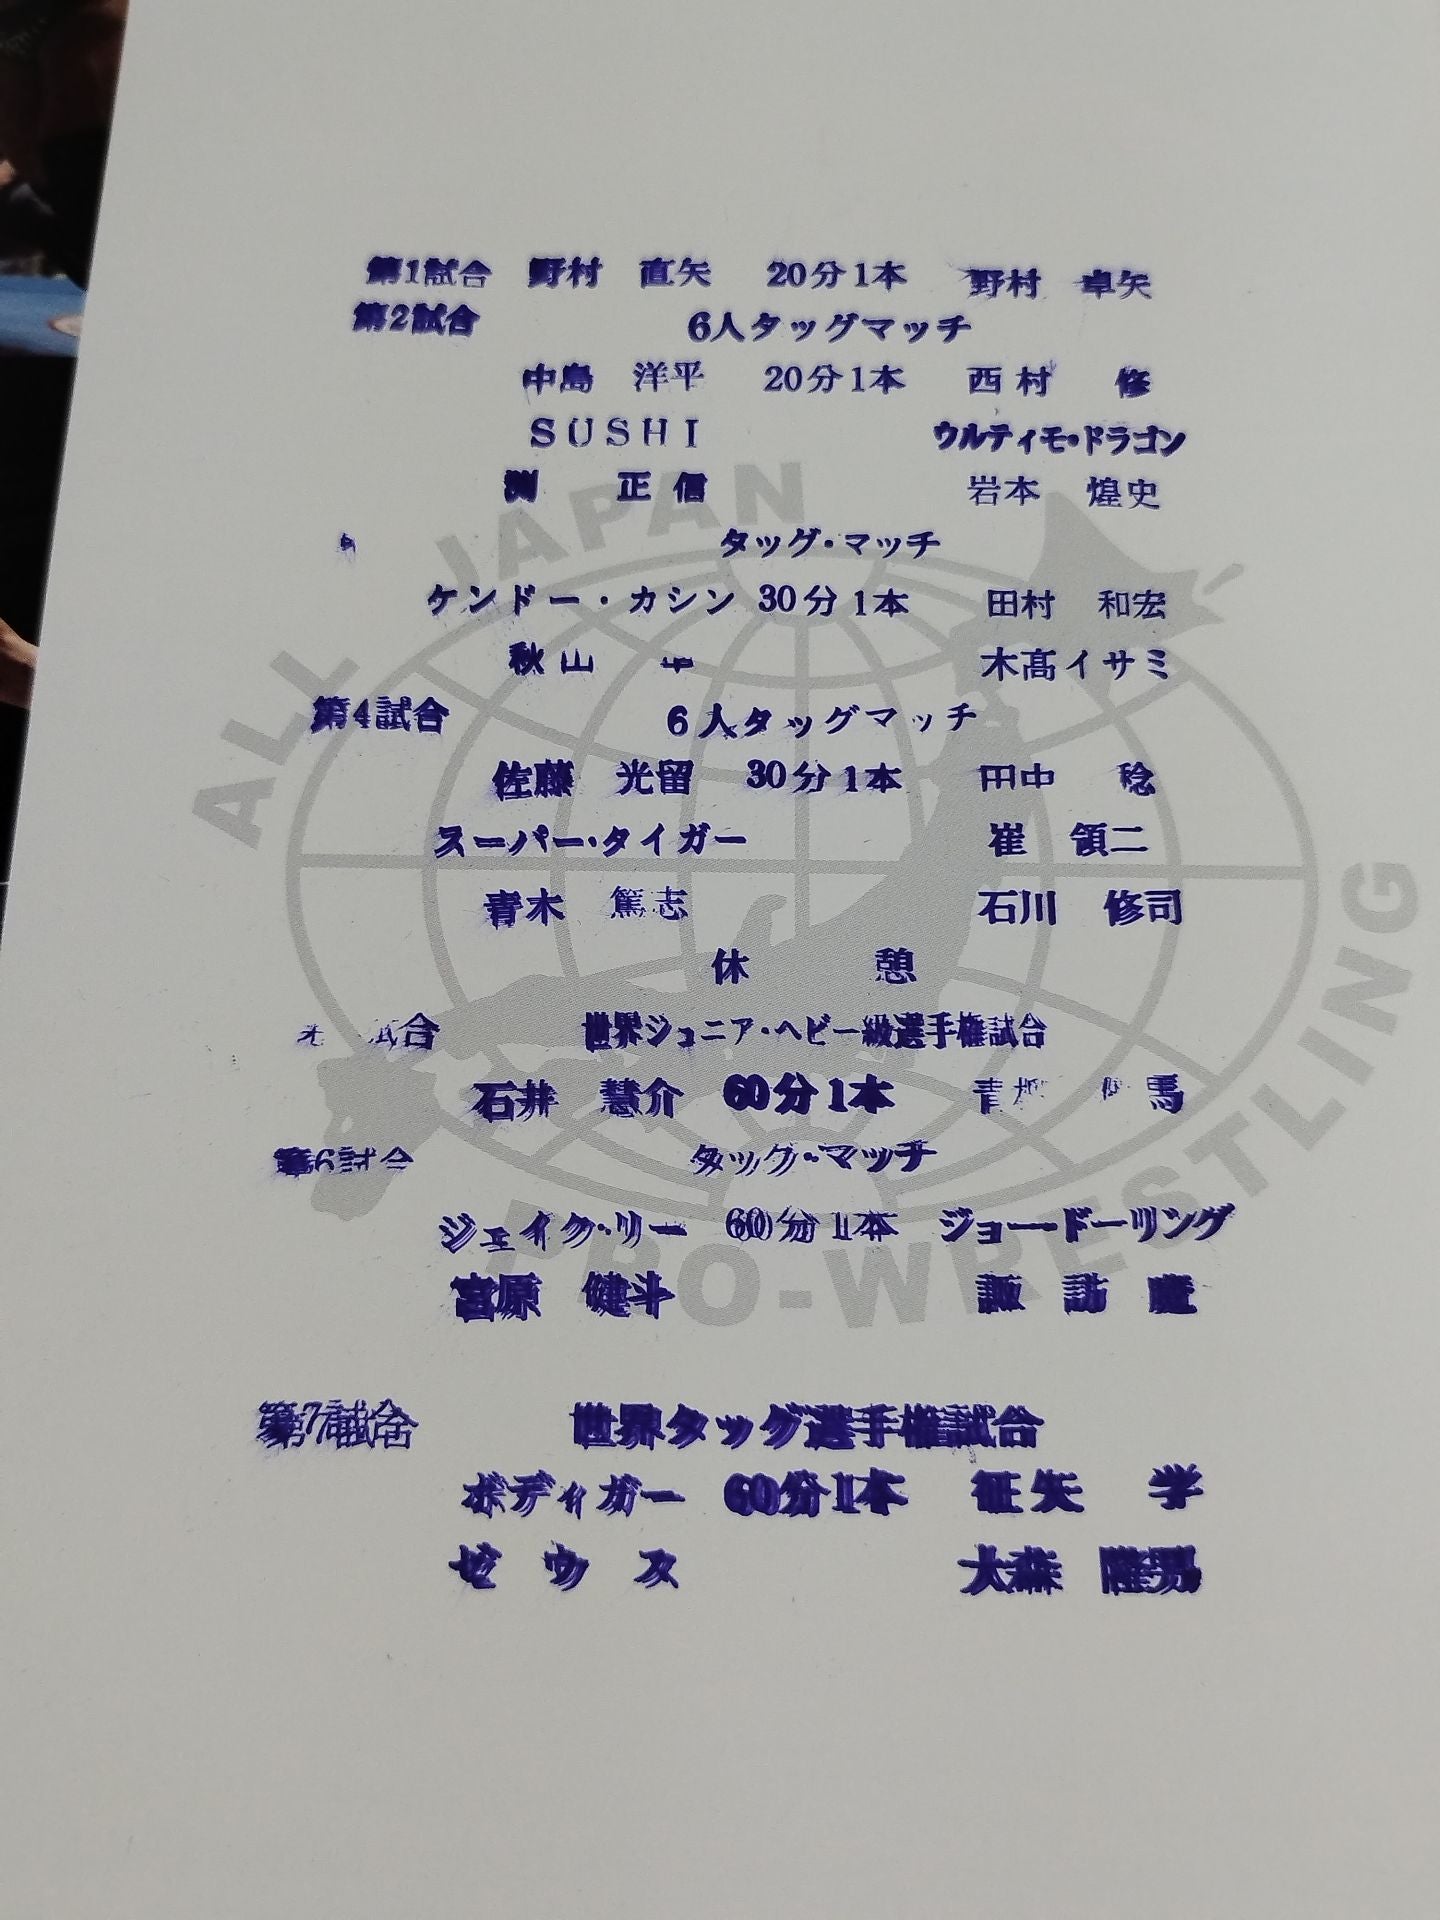 第1試合 野村 直矢 20分1本 野村 卓矢
第2試合 6人タッグマッチ
中島 洋平 20分1本 西村 修
SUSHI ウルティモ・ドラゴン
渕 正信 岩本 煌史
タッグ・マッチ
ケンドー・カシン 30分1本 田村 和宏
秋山 木髙イサミ
第4試合 6人タッグマッチ
佐藤 光留 30分1本 田中 稔
スーパー・タイガー 崔 領二
青木 篤志 石川 修司
休 憩
試合 世界ジュニア・ヘビー級選手権試合
石井 慧介 60分1本 青柳 優馬
第6試合 タッグ・マッチ
ジェイク・リー 60分1本 ジョー・ドーリング
宮原 健斗 諏訪魔
第7試合 世界タッグ選手権試合
ボディガー 60分1本 征矢 学
ゼウス 大森 隆男
ALL JAPAN
PRO-WRESTLING